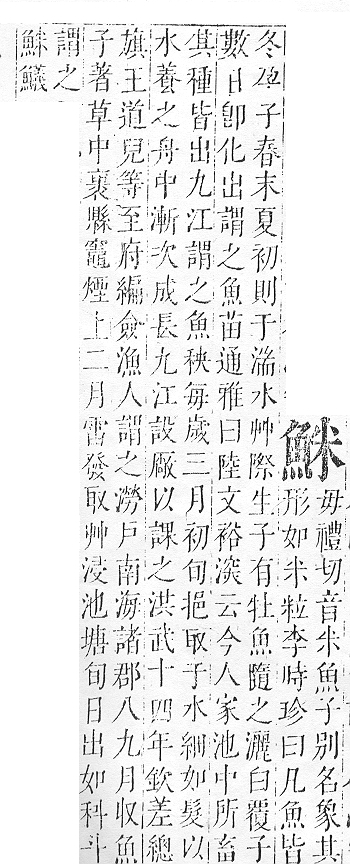 鮇
毋禮切音米魚子別名象其
形如米粒李時珍曰凡魚皆
冬孕子春末夏初則于湍水艸際生子有牡魚隨之灑白覆子
數日卽化出謂之魚苗通雅曰陸文裕深云今人家池中所畜
其種皆出九江謂之魚秧每歲三月初旬挹取于水細如髮以
水養之舟中漸次成長九江設厰以課之洪武十四年欽差總
旗王道兒等至府編僉漁人謂之澇戶南海諸郡八九月收魚
子著草中裹縣竈煙上二月雷發取艸浸池塘旬日出如科斗
謂之
鮇鱶